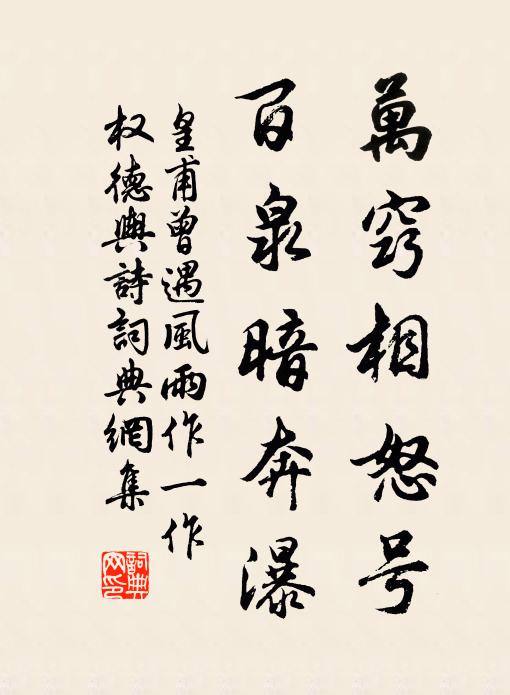 萬窍相怒号
百泉暗奔瀑
皇甫曾遇風雨作一作
权德輿詩詞典網集
詞典网印